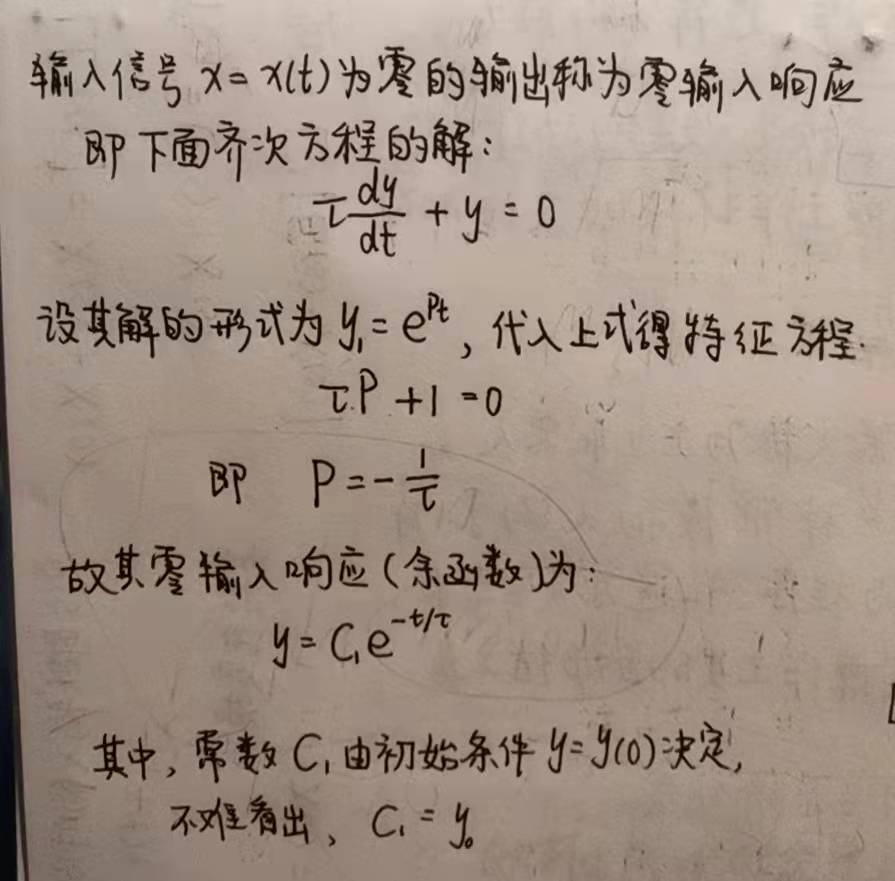 输入信号 x = x(t) 为零的输出称为零输入响应
即下面齐次方程的解:
τ dy/dt + y = 0
设其解的形式为 y₁ = e^{Pt}, 代入上式得特征方程.
τP + 1 = 0
即 P = -1/τ
故其零输入响应(余函数)为:
y = C₁e^{-t/τ}
其中, 常数 C₁ 由初始条件 y = y(0) 决定,
不难看出, C₁ = y₀